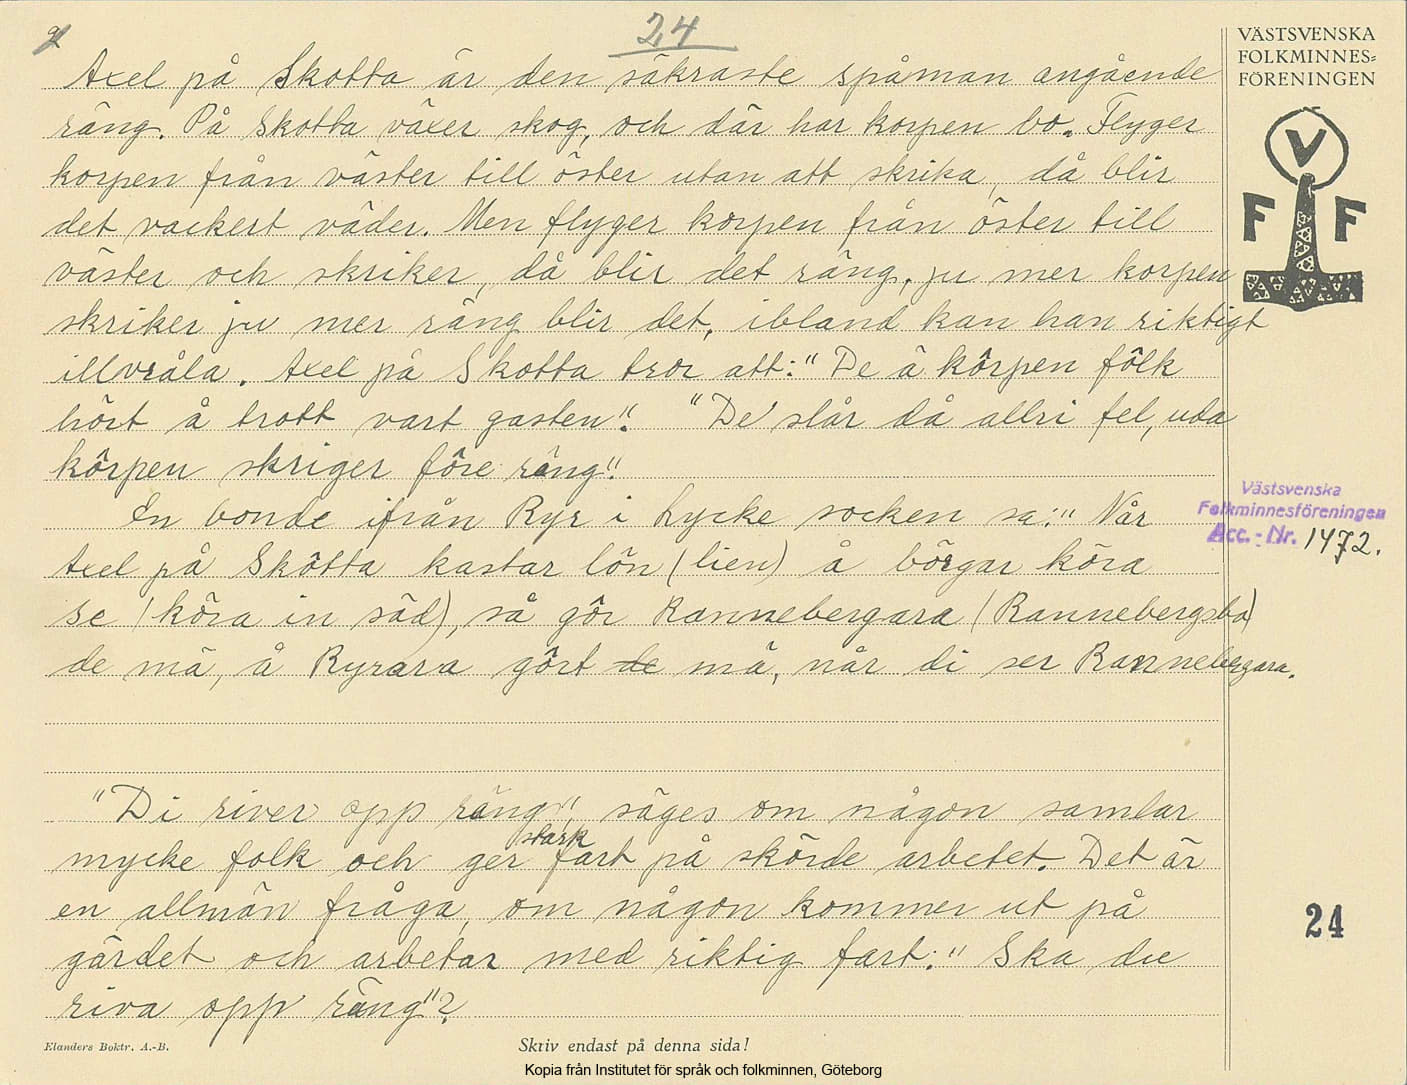 24
VÄSTSVENSKA
FOLKMINNES=
FÖRENINGEN
Axel på Skotta är den säkraste spåman angående
räng. På Skotta växer skog, och där har korpen bo. Flyger
korpen från väster till öster utan att skrika, då blir
det vackert väder. Men flyger korpen från öster till
väster och skriker, då blir det räng, ju mer korpen
skriker ju mer räng blir det, ibland kan han riktigt
illvråla. Axel på Skotta tror att: "De ä kôrpen fôlk
hört å trott vart gasten". "De' slår då allri fel, uda
kôrpen skriger fôre räng".
En bonde ifrån Ryr i Lycke socken sa: "Når
Axel på Skôtta kastar lön (lien) å börgar köra
se (köra in säd), så gôr Rannebergara (Rannebergsbo)
de mä, å Ryrara gôrt de mä, når di ser Rannebergara.
"Di river opp räng", säges om någon samlar
mycke folk och ger stark fart på skörde arbetet. Det är
en allmän fråga, om någon kommer ut på
gärdet och arbetar med riktig fart: "Ska du
riva opp räng"?
V
F F
Västsvenska
Folkminnesföreningen
Acc.-Nr. 1472.
24
Elanders Boktr. A.-B.
Skriv endast på denna sida!
Kopia från Institutet för språk och folkminnen, Göteborg